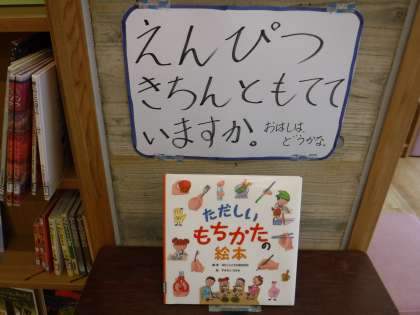 えんぴつ
きちんともてて
いますか。
おはしは、
どうかな。
ただしい
もちかたの
絵本